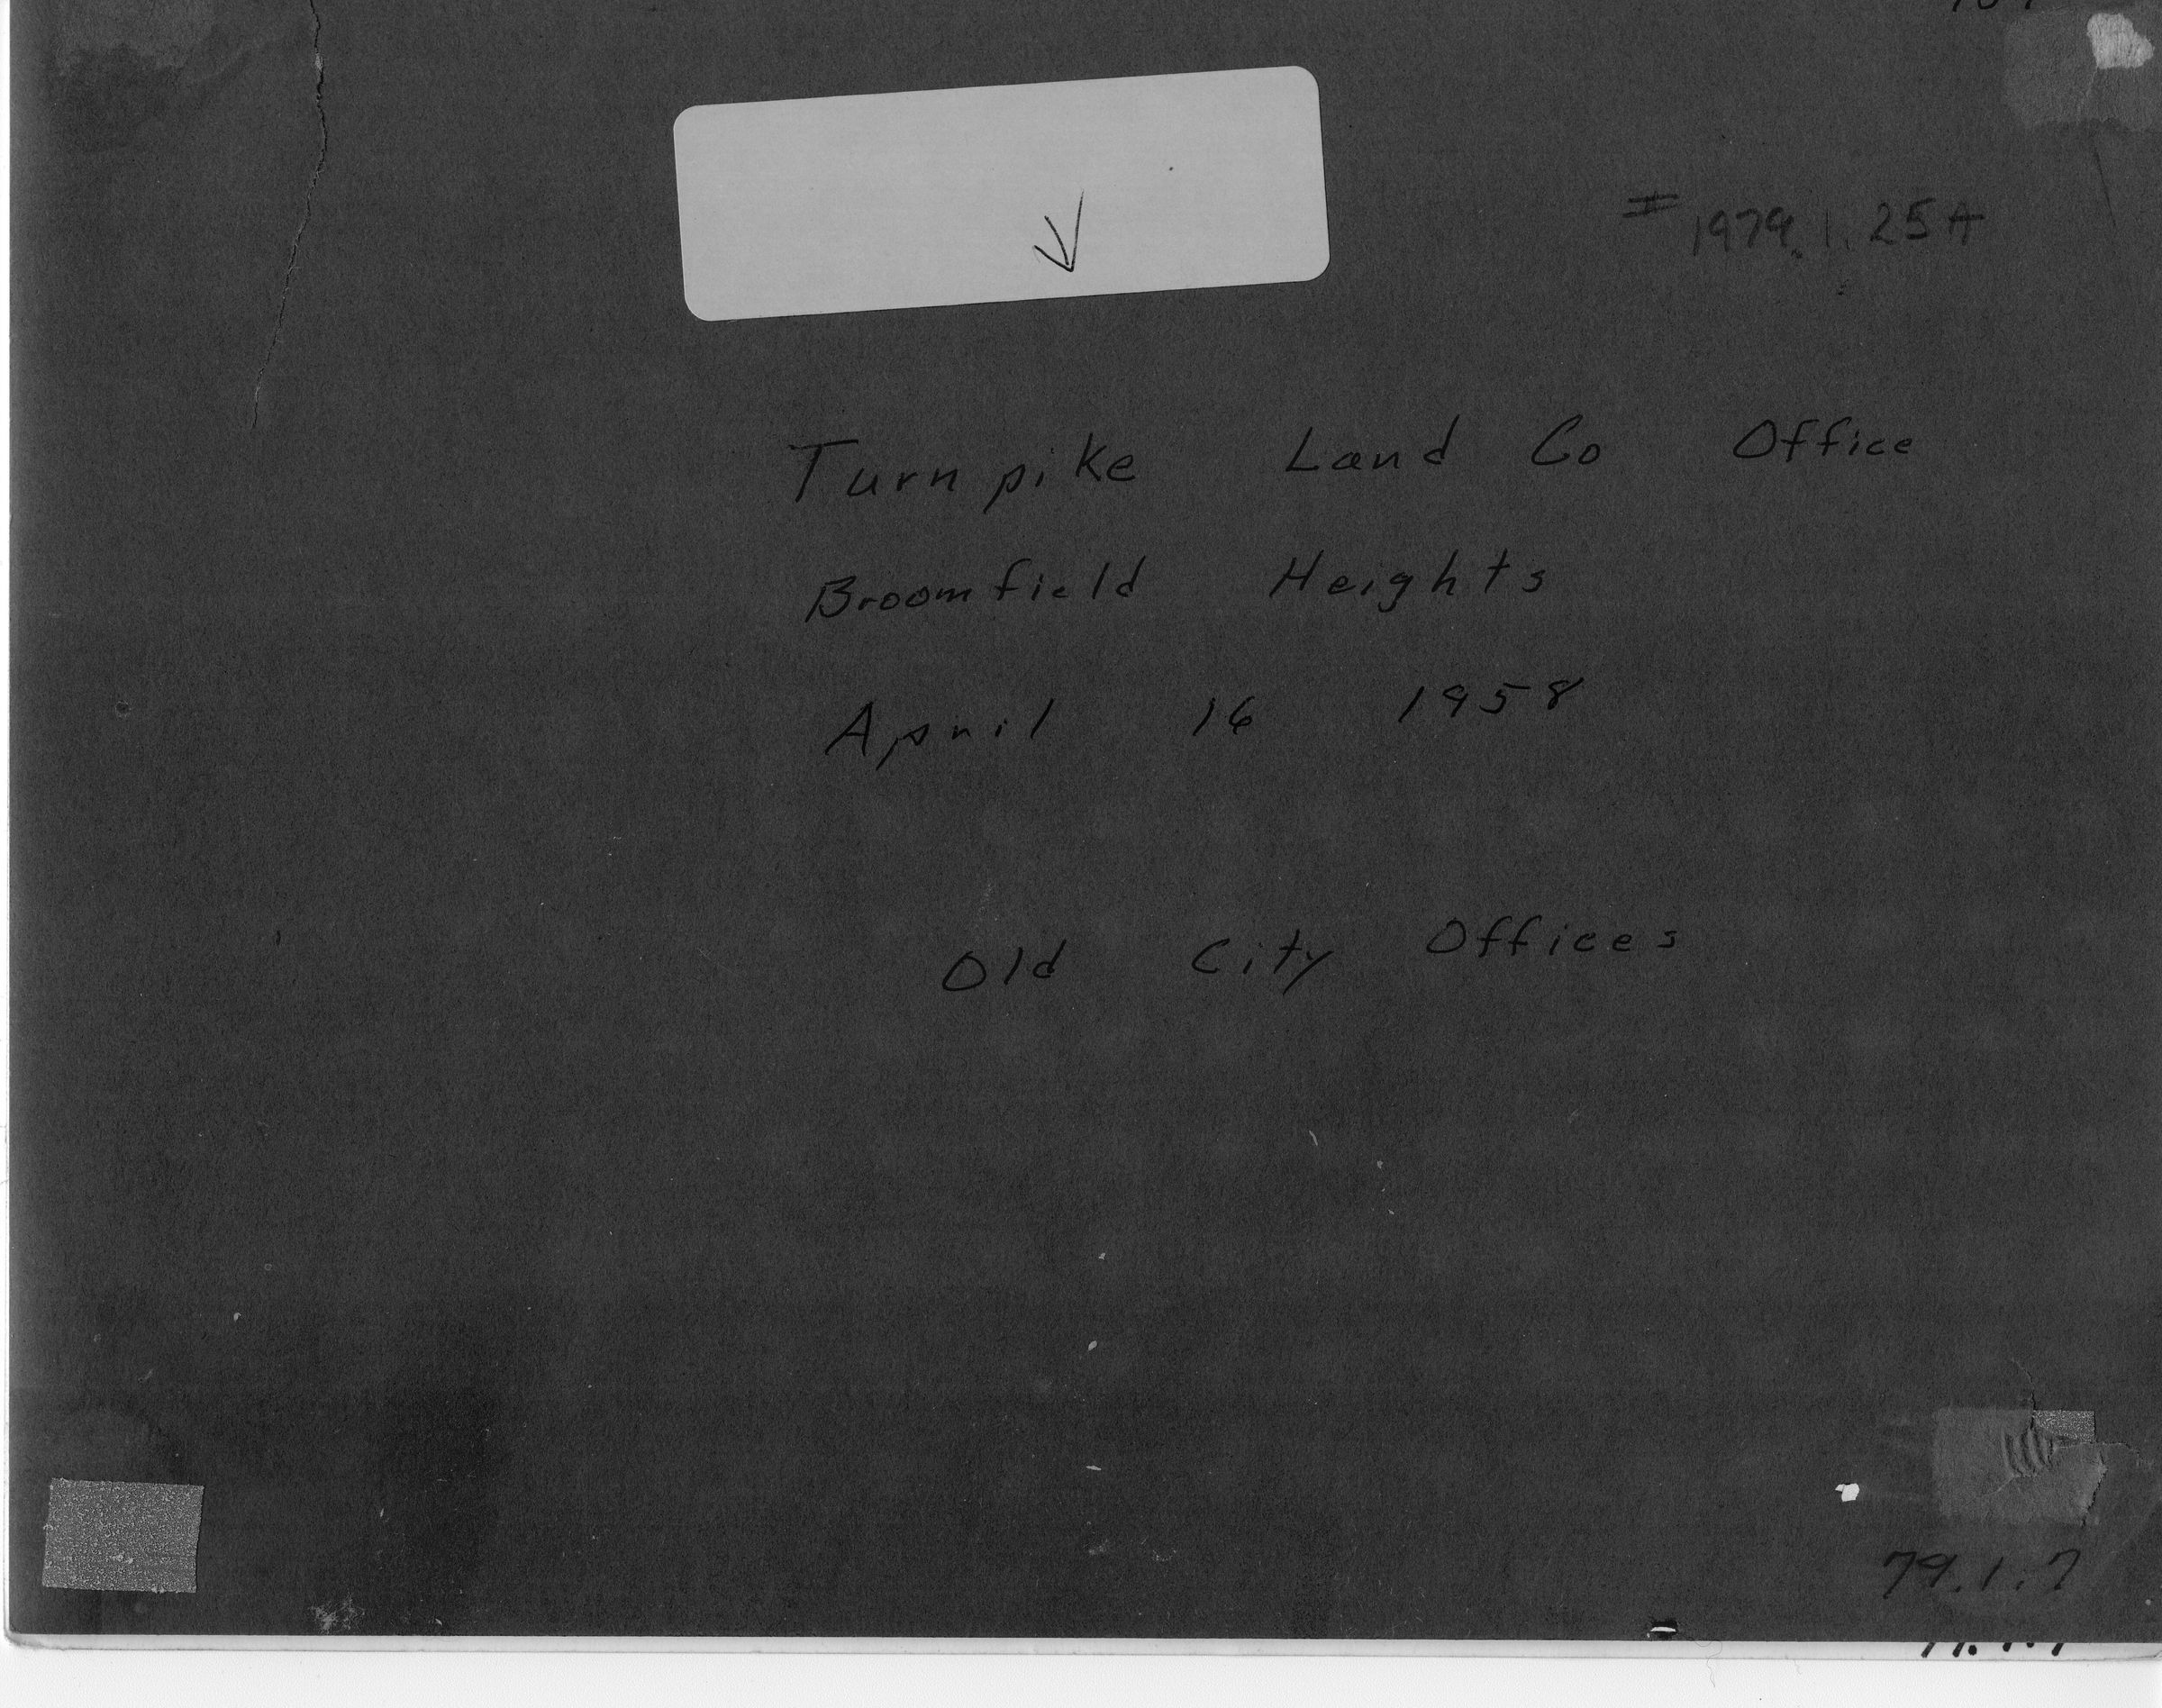 # 1979.1.25A
Turnpike Land Co Office
Broomfield Heights
April 16 1958
Old City Offices
79.1.7